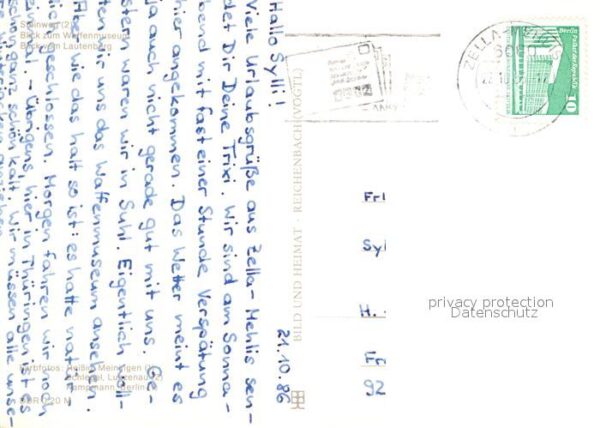 Steinweg (2)
Blick zum Waffenmuseum
Blick vom Lautenberg
21.10.86
Hallo Sylli!
Viele Urlaubsgrüße aus Zella-Mehlis sen-
det Dir Deine Trixi. Wir sind am Sonna-
bend mit fast einer Stunde Verspätung
hier angekommen. Das Wetter meint es
ja auch nicht gerade gut mit uns. Ge-
stern waren wir in Suhl. Eigentlich woll-
ten wir uns das Waffenmuseum ansehen.
Aber wie das halt so ist: es hatte natür-
lich geschlossen. Morgen fahren wir noch
einmal. - Übrigens, hier in Thüringen ist es
schon ganz schön kalt. Wir müssen alle unse-
anziehen
BILD UND HEIMAT · REICHENBACH (VOGTL)
ZELLA-
10
DDR
Frl
Syl
H.
Fr
92
privacy protection
Datenschutz
Meiningen
Berlin
DDR 0,20 M